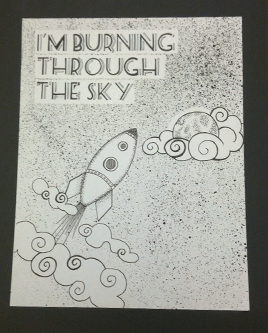 I'M BURNING
THROUGH
THE SKY